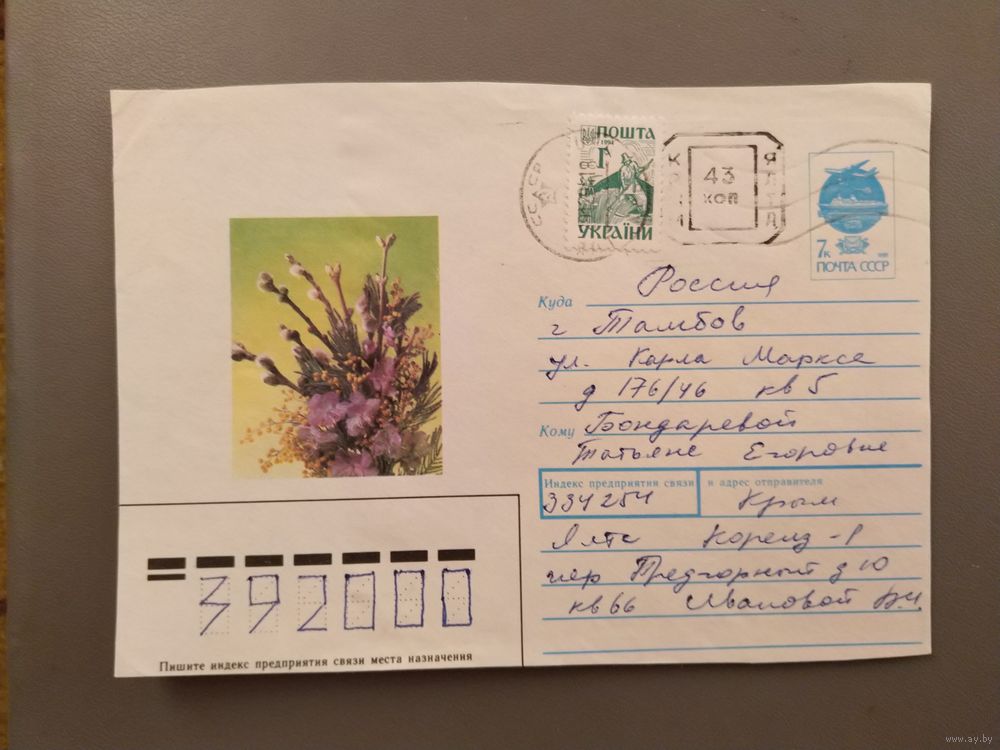 ПОШТА
1994
Г
УКРАЇНИ
СССР
43
КОП
ЯЛТА
7к
ПОЧТА СССР
Куда Россия
г Тамбов
ул. Карла Маркса
д 176/46 кв 5
Кому Бондаревой
Татьяне Егоровне
Индекс предприятия связи и адрес отправителя
334254 Крым
Ялта Кореиз-1
пер Предгорный д 10
кв 66 Ивановой
392000
Пишите индекс предприятия связи места назначения
www.ay.by